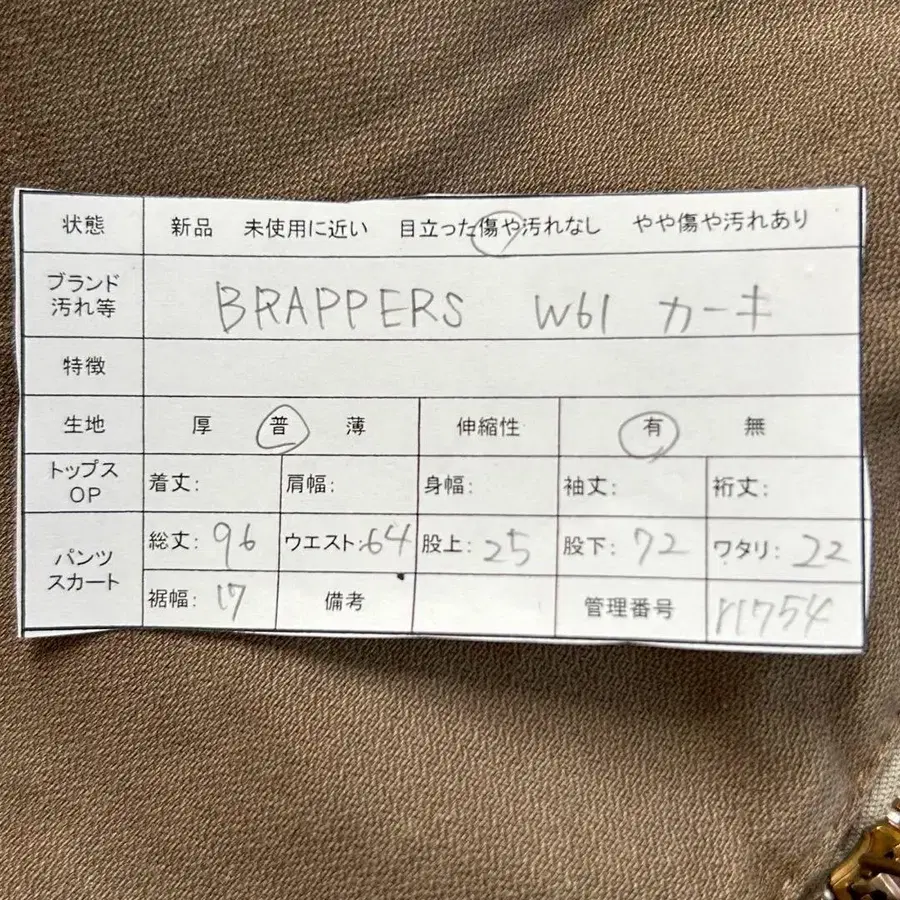 状態 新品 未使用に近い 目立った傷や汚れなし やや傷や汚れあり
ブランド
汚れ等
BRAPPERS W61 カーキ
特徴
生地 厚 普 薄 伸縮性 有 無
トップス
OP
着丈: 肩幅: 身幅: 袖丈: 裄丈:
パンツ
スカート
総丈: 96 ウエスト:64 股上: 25 股下: 72 ワタリ: 22
裾幅: 17 備考 管理番号 r1754